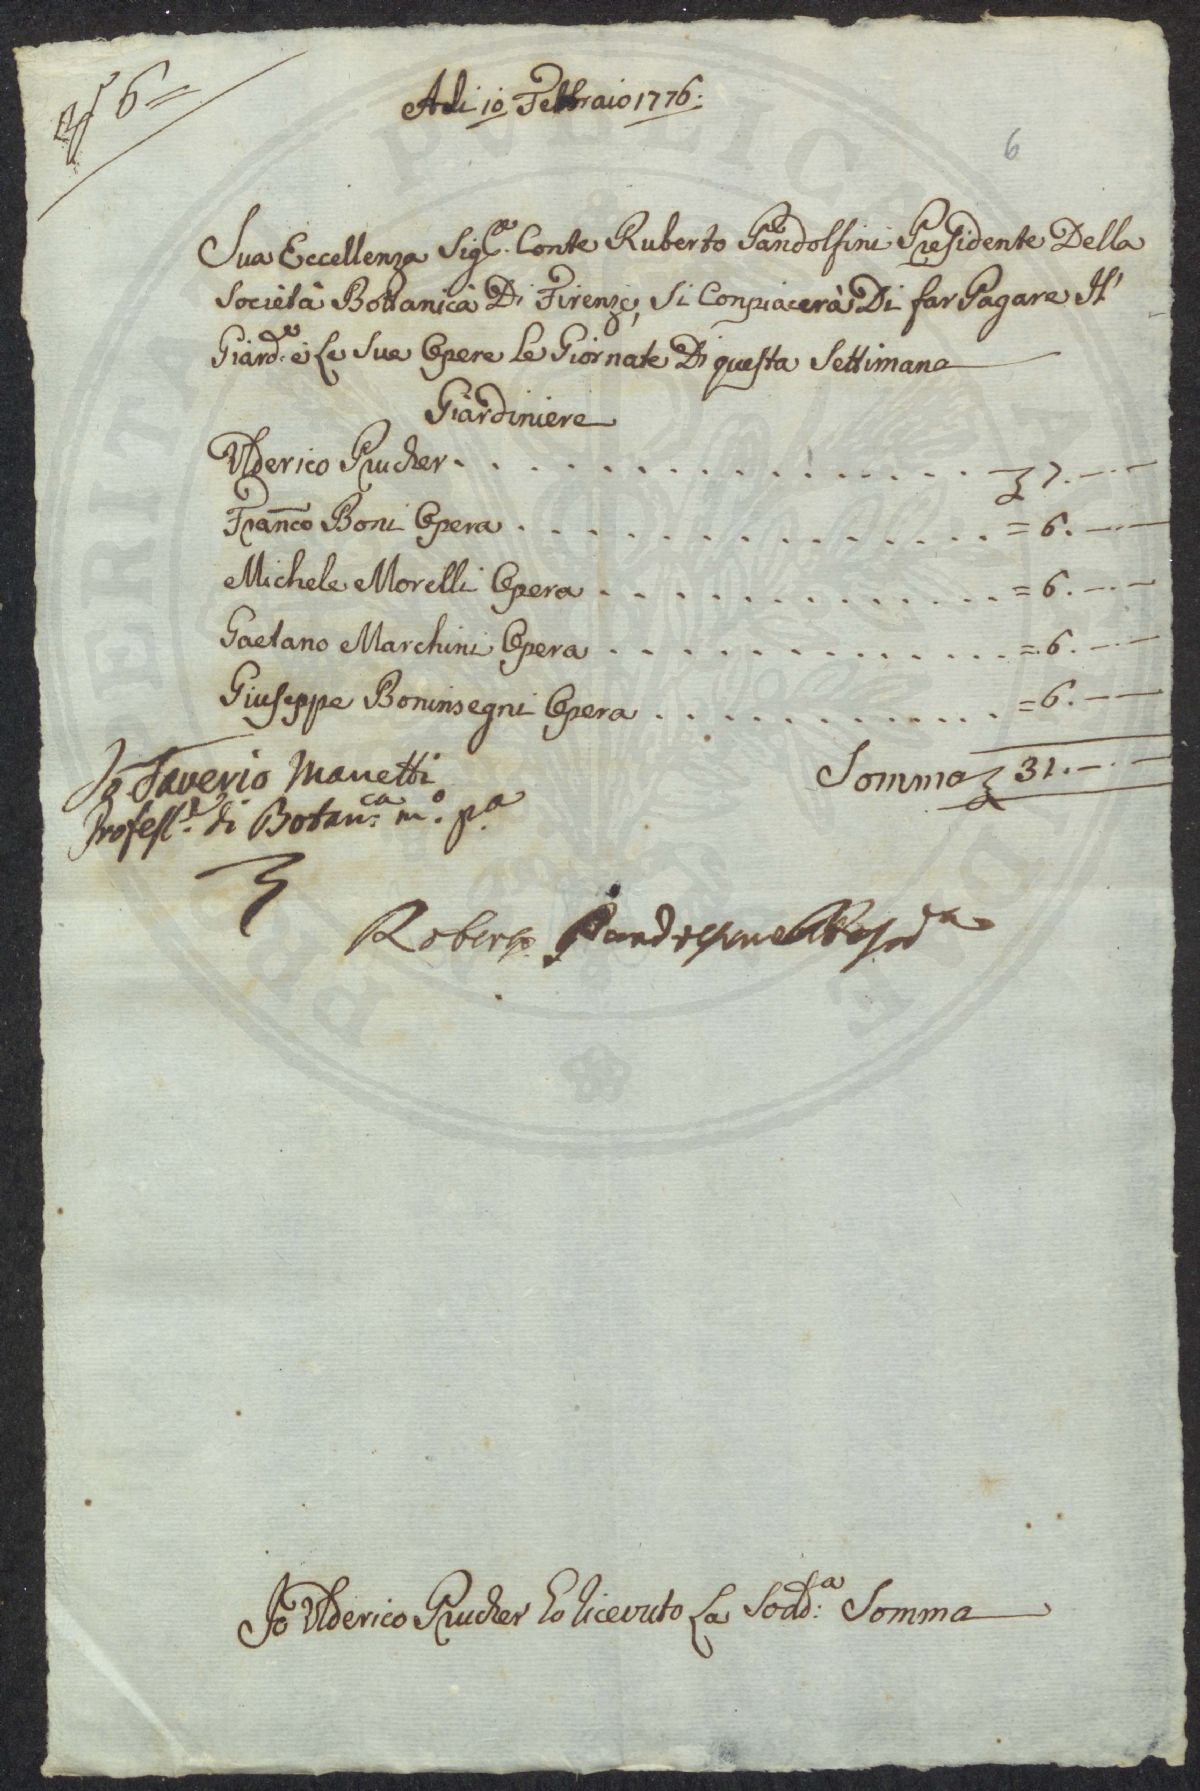 6=
Adi 10 Febbraio 1776:
6
Sua Eccellenza Sig.re Conte Ruberto Pandolfini Presidente Della
Società Bottanica Di Firenze, Si Conpiacerà Di far Pagare Il
Giard.re e Le Sue Opere Le Giornate Di questa Settimana
Giardiniere
Ulderico Prucher . . . . . . . . . . . . . . 7.—.—
Fran̄co Boni Opera . . . . . . . . . . . . . = 6.—.—
Michele Morelli Opera . . . . . . . . . . . = 6.—.—
Gaetano Marchini Opera . . . . . . . . . . . = 6.—.—
Giuseppe Boninsegni Opera . . . . . . . . . = 6.—.—
Somma 31.—.—
Io Saverio Manetti
Profess.re di Botan.ca m.o p.a
Roberto Pandolfini
Io Ulderico Prucher ho licevuto La Sodd.a Somma
PUBLICAE
PROSPERITATI